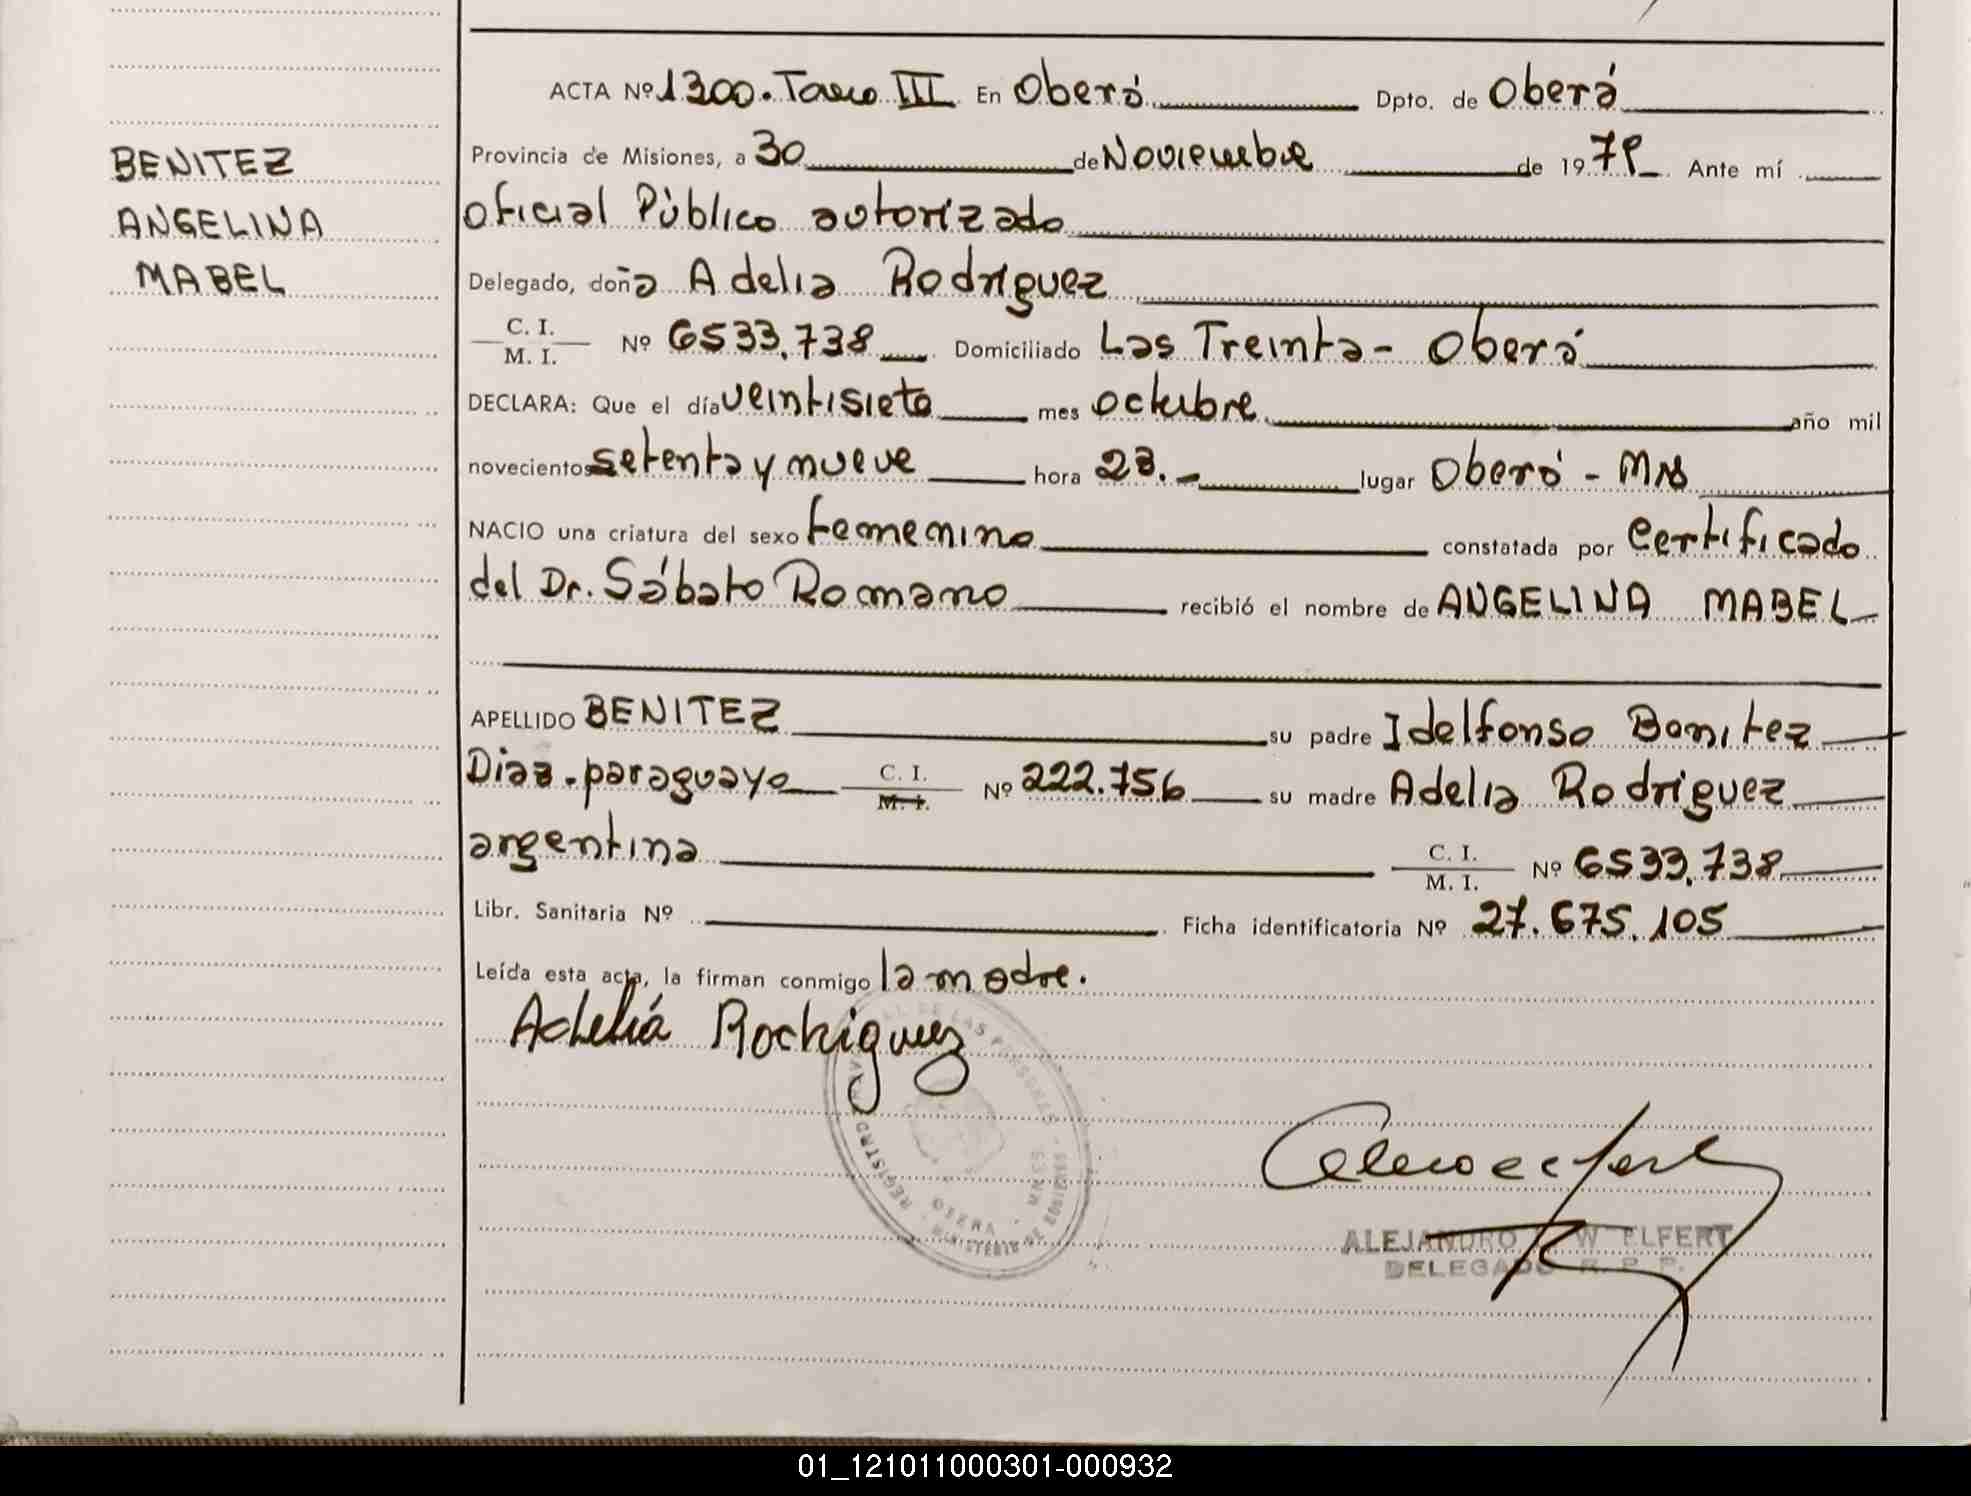 ACTA Nº 1300. Tomo III En Oberá Dpto. de Oberá
BENITEZ
ANGELINA
MABEL
Provincia de Misiones, a 30 de Noviembre de 1979 Ante mí
oficial Público autorizado
Delegado, doña Adelia Rodriguez
C. I.
M. I. Nº 6533.738 Domiciliado Las Treinta - Oberá
DECLARA: Que el día veintisiete mes octubre año mil
novecientos setenta y nueve hora 23.- lugar Oberá - Mns
NACIO una criatura del sexo femenino constatada por Certificado
del Dr. Sábato Romano recibió el nombre de ANGELINA MABEL
APELLIDO BENITEZ su padre Idelfonso Benitez
Diaz. paraguayo C. I. M. I. Nº 222.756 su madre Adelia Rodriguez
argentina C. I. M. I. Nº 6533.738
Libr. Sanitaria Nº Ficha identificatoria Nº 27.675.105
Leída esta acta, la firman conmigo la madre.
Adeliá Rodriguez
REGISTRO DE LAS PERSONAS - MNES
OBERA
MINISTERIO DE GOBIERNO
ALEJANDRO W ELFERT
DELEGADO R. P. P.
01_121011000301-000932